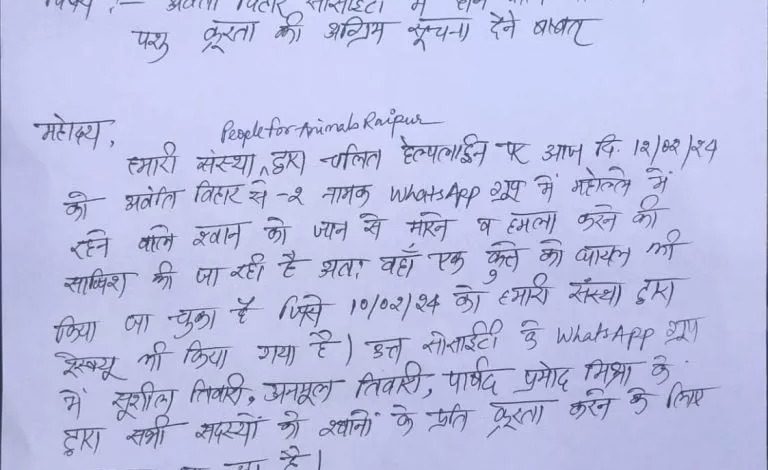 विषय :- अवंति विहार सोसाईटी में होने
पशु क्रूरता की अग्रिम सूचना देने बाबत
महोदय,
People for Animals Raipur
हमारी संस्था द्वारा चलित हेल्पलाईन पर आज दि. 12/02/24
को अवंति विहार से -2 नामक WhatsApp ग्रुप में मोहल्ले में
रहने वाले श्वान को जान से मारने व हमला करने की
साजिश की जा रही है अतः वहाँ एक कुत्ते को घायल भी
किया जा चुका है जिसे 10/02/24 को हमारी संस्था द्वारा
रेस्क्यू भी किया गया है। उक्त सोसाईटी के WhatsApp ग्रुप
में सुशील तिवारी, अनमूल तिवारी, पार्षद प्रमोद मिश्रा के
द्वारा सभी सदस्यों को श्वानों के प्रति क्रूरता करने के लिए
है।